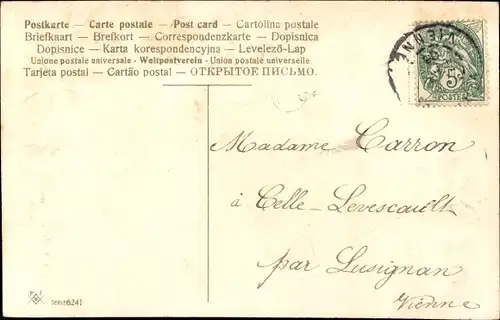 Postkarte — Carte postale — Post card — Cartolina postale
Briefkaart — Brefkort — Correspondenzkarte — Dopisnica
Dopisnice — Karta korespondencyjna — Levelező-Lap
Unione postale universale - Weltpostverein - Union postale universelle
Tarjeta postal — Cartão postal — ОТКРЫТОЕ ПИСЬМО.
VIENNE
5
POSTES
Madame Carron
à Celle-Levescault
par Lusignan
Vienne
6241